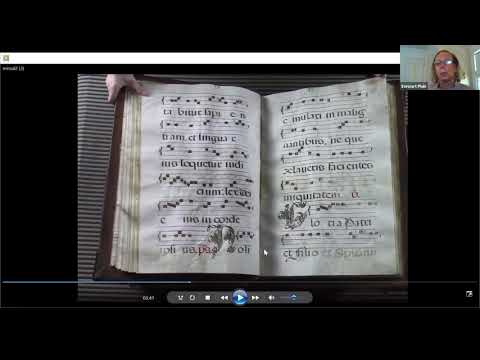 tabitur sapi e n
tiam, et lingua e
ius loquetur iudi
cium: lex dei
e ius in corde
ipsi us,
Noli
e mulari in malig
nantibus, neque
zelaveris facientes
iniquitatem.
Glo ria Patri
et filio et Spiritui
03:41
Stewart